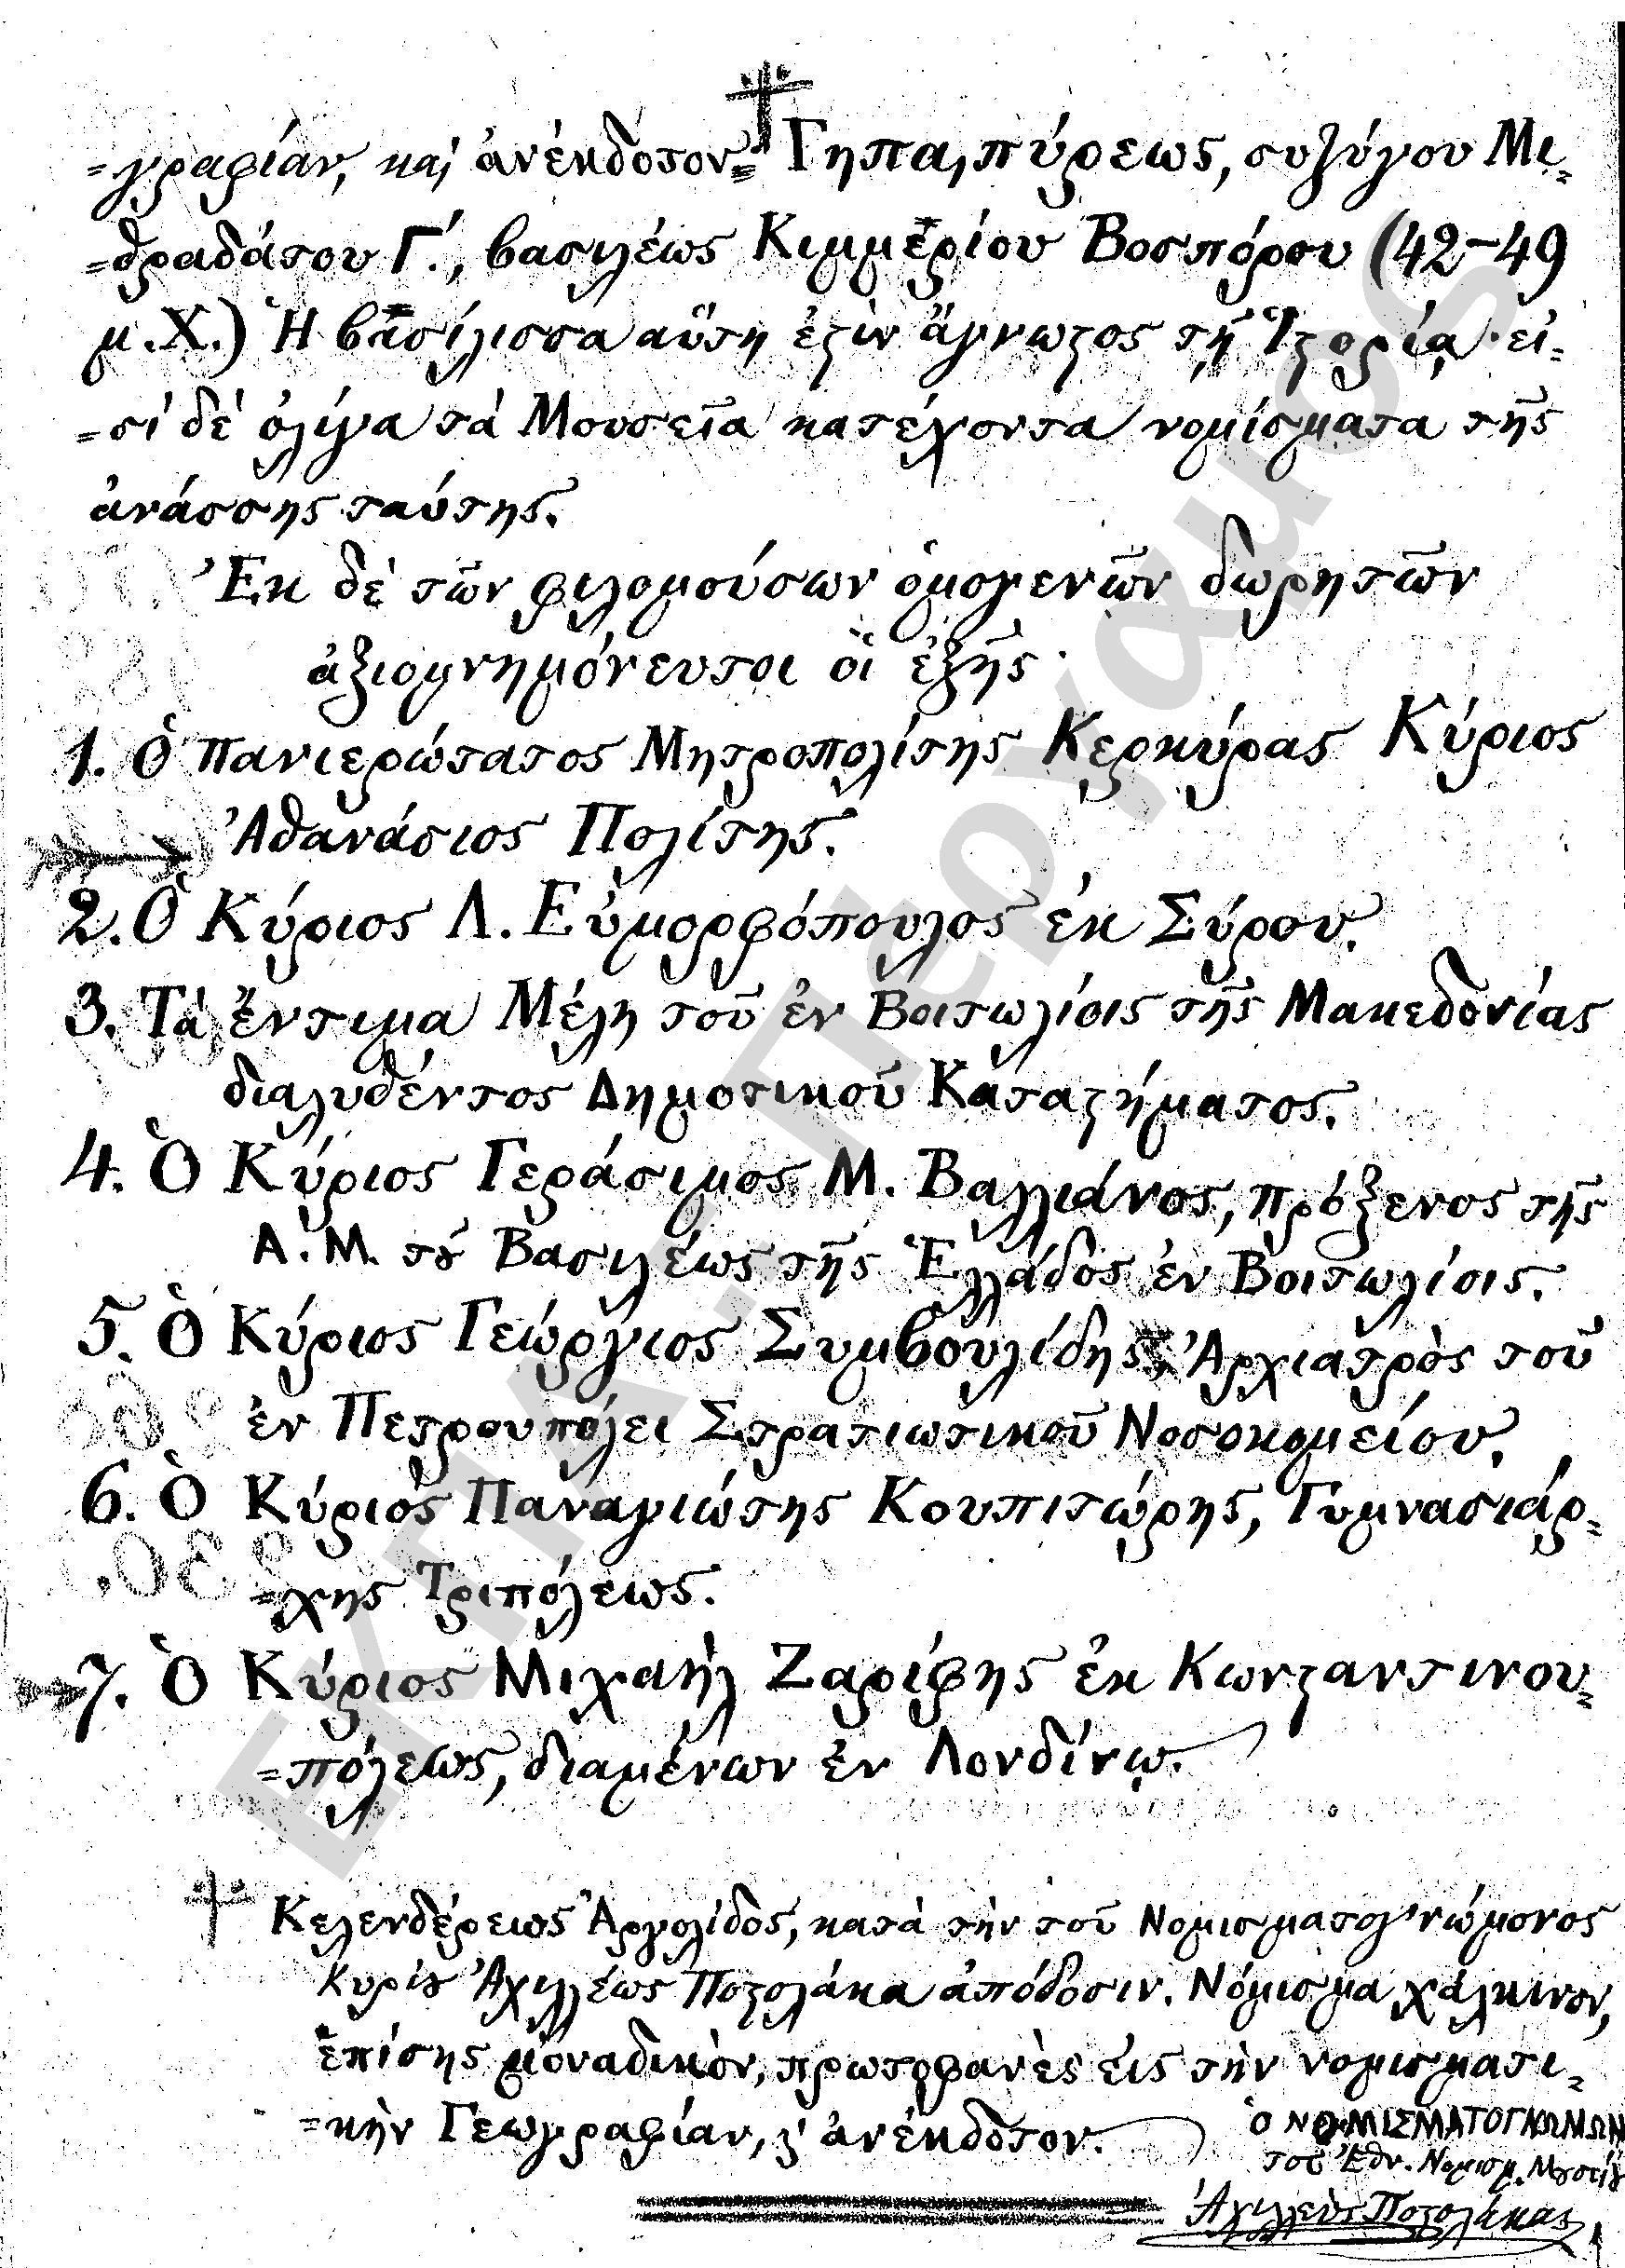 =γραφίαν, καὶ ἀνέκδοτον.= Γηπαιπύρεως, συζύγου Μι=
=θραδάτου Γ΄., βασιλέως Κιμμερίου Βοσπόρου (42–49
μ.Χ.) Ἡ βασίλισσα αὕτη ἐϛὶν ἄγνωϛος τῇ Ἱϛορίᾳ· εἰ=
=σὶ δὲ ὀλίγα τὰ Μουσεῖα κατέχοντα νομίσματα τῆς
ἀνάσσης ταύτης.
Ἐκ δὲ τῶν φιλομούσων ὁμογενῶν δωρητῶν
ἀξιομνημόνευτοι οἱ ἑξῆς·
1. Ὁ πανιερώτατος Μητροπολίτης Κερκύρας Κύριος
Ἀθανάσιος Πολίτης.
2. Ὁ Κύριος Λ. Εὐμορφόπουλος ἐκ Σύρου.
3. Τὰ ἔντιμα Μέλη τοῦ ἐν Βοιτωλίοις τῆς Μακεδονίας
διαλυθέντος Δημοτικοῦ Καταϛήματος.
4. Ὁ Κύριος Γεράσιμος Μ. Βαλλιάνος, πρόξενος τῆς
Α.Μ. τȣ͂ Βασιλέως τῆς Ἑλλάδος ἐν Βοιτωλίοις.
5. Ὁ Κύριος Γεώργιος Συμβουλίδης, Ἀρχιατρὸς τοῦ
ἐν Πετρουπόλει Στρατιωτικοῦ Νοσοκομείου.
6. Ὁ Κύριος Παναγιώτης Κουπιτώρης, Γυμνασιάρ=
=χης Τριπόλεως.
7. Ὁ Κύριος Μιχαὴλ Ζαρίφης ἐκ Κωνϛαντινου=
=πόλεως, διαμένων ἐν Λονδίνῳ.
Κελενδέρεως Ἀργολίδος, κατὰ τὴν τοῦ Νομισματογνώμονος
Κυρίȣ Ἀχιλλέως Ποϛολάκα ἀπόδοσιν. Νόμισμα χάλκινον,
ἐπίσης μοναδικὸν, πρωτοφανὲς εἰς τὴν νομισματι=
=κὴν Γεωγραφίαν, ϗ ἀνέκδοτον.
Ὁ ΝΟΜΙΣΜΑΤΟΓΝΩΜΩΝ
τοῦ Ἐθν. Νομισμ. Μȣσείȣ
Ἀχιλλεὺς Ποϛολάκας
ΕΚΠΑ - Πέργαμος